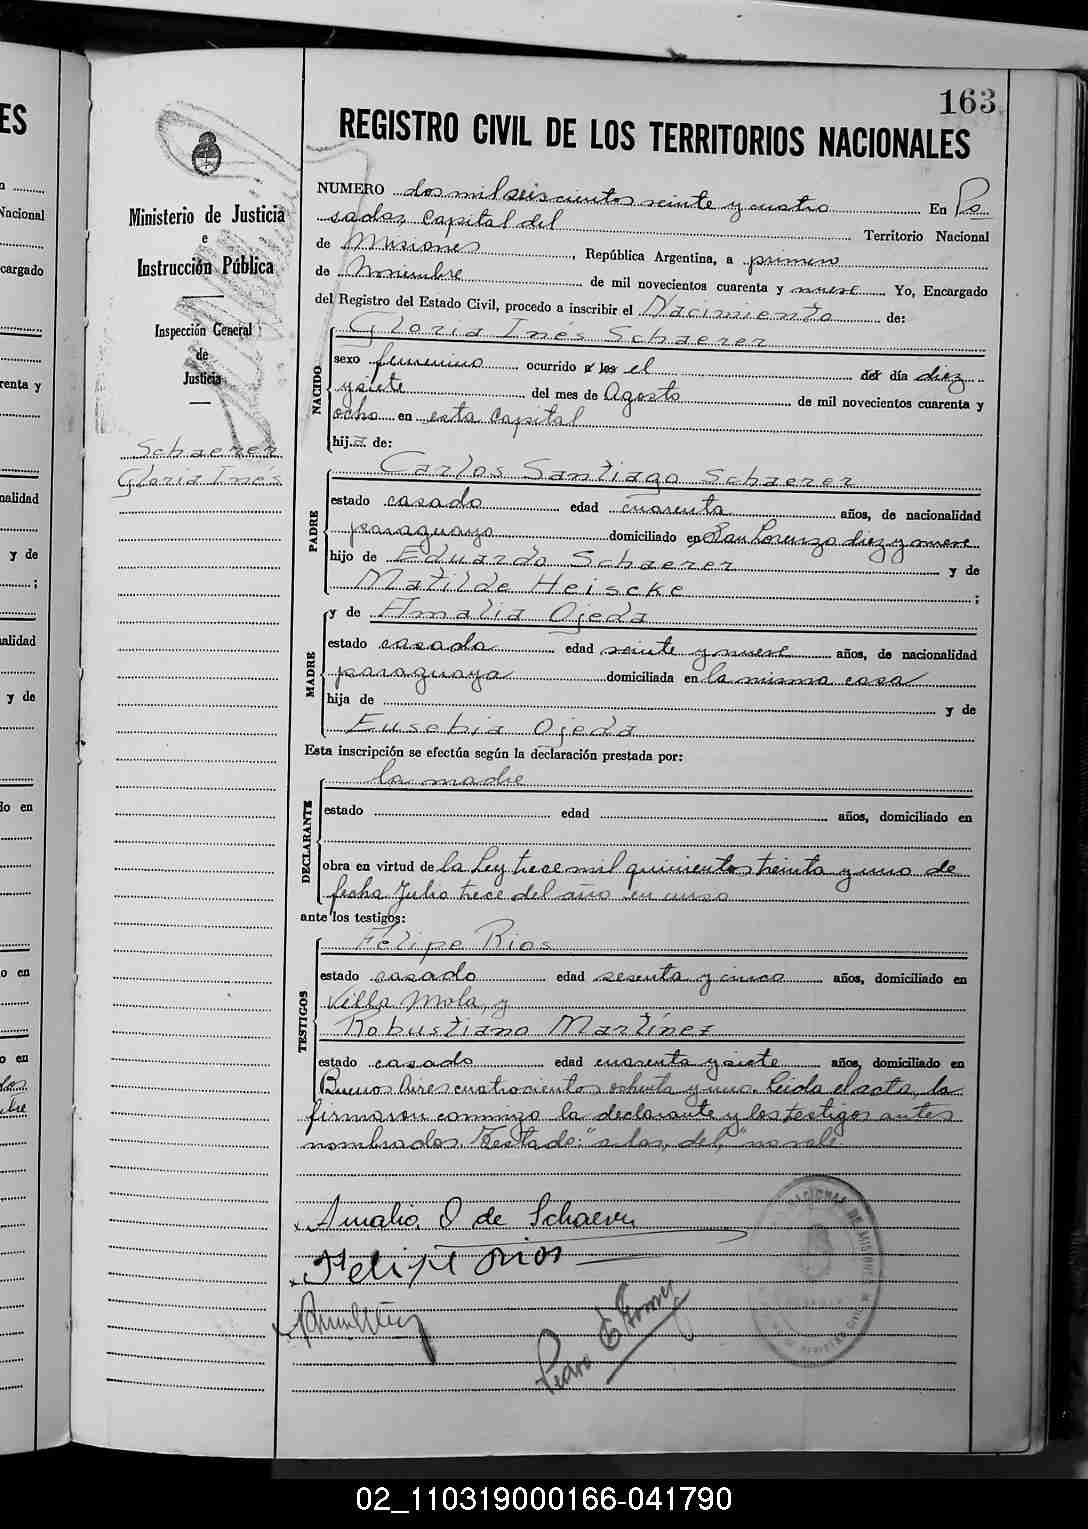 163
REGISTRO CIVIL DE LOS TERRITORIOS NACIONALES
Ministerio de Justicia
e
Instrucción Pública
Inspección General
de
Justicia
Schaerer
Gloria Inés
NUMERO dos mil seiscientos veinte y cuatro En Po
sadas, Capital del Territorio Nacional
de Misiones, República Argentina, a primero
de Noviembre de mil novecientos cuarenta y nueve Yo, Encargado
del Registro del Estado Civil, procedo a inscribir el Nacimiento de:
NACIDO
Gloria Inés Schaerer
sexo femenino ocurrido a las el del día diez
y siete del mes de Agosto de mil novecientos cuarenta y
ocho en esta capital
hija de:
PADRE
Carlos Santiago Schaerer
estado casado edad cuarenta años, de nacionalidad
paraguayo domiciliado en San Lorenzo diez y nueve
hijo de Eduardo Schaerer y de
Matilde Heiscke ;
y de Amalia Ojeda
MADRE
estado casada edad veinte y nueve años, de nacionalidad
paraguaya domiciliada en la misma casa
hija de y de
Eusebia Ojeda
Esta inscripción se efectúa según la declaración prestada por:
DECLARANTE
la madre
estado edad años, domiciliado en
obra en virtud de la Ley trece mil quinientos treinta y uno de
fecha Julio trece del año en curso
ante los testigos:
TESTIGOS
Felipe Rios
estado casado edad sesenta y cinco años, domiciliado en
Villa Mola, y
Robustiano Martínez
estado casado edad cuarenta y siete años, domiciliado en
Buenos Aires cuatrocientos ochenta y uno. Leida el acta, la
firmaron conmigo la declarante y los testigos antes
nombrados. Testado: "a las, del," no vale.
Amalia O de Schaerer
Felipe Rios
Pedro E Gomez
02_110319000166-041790